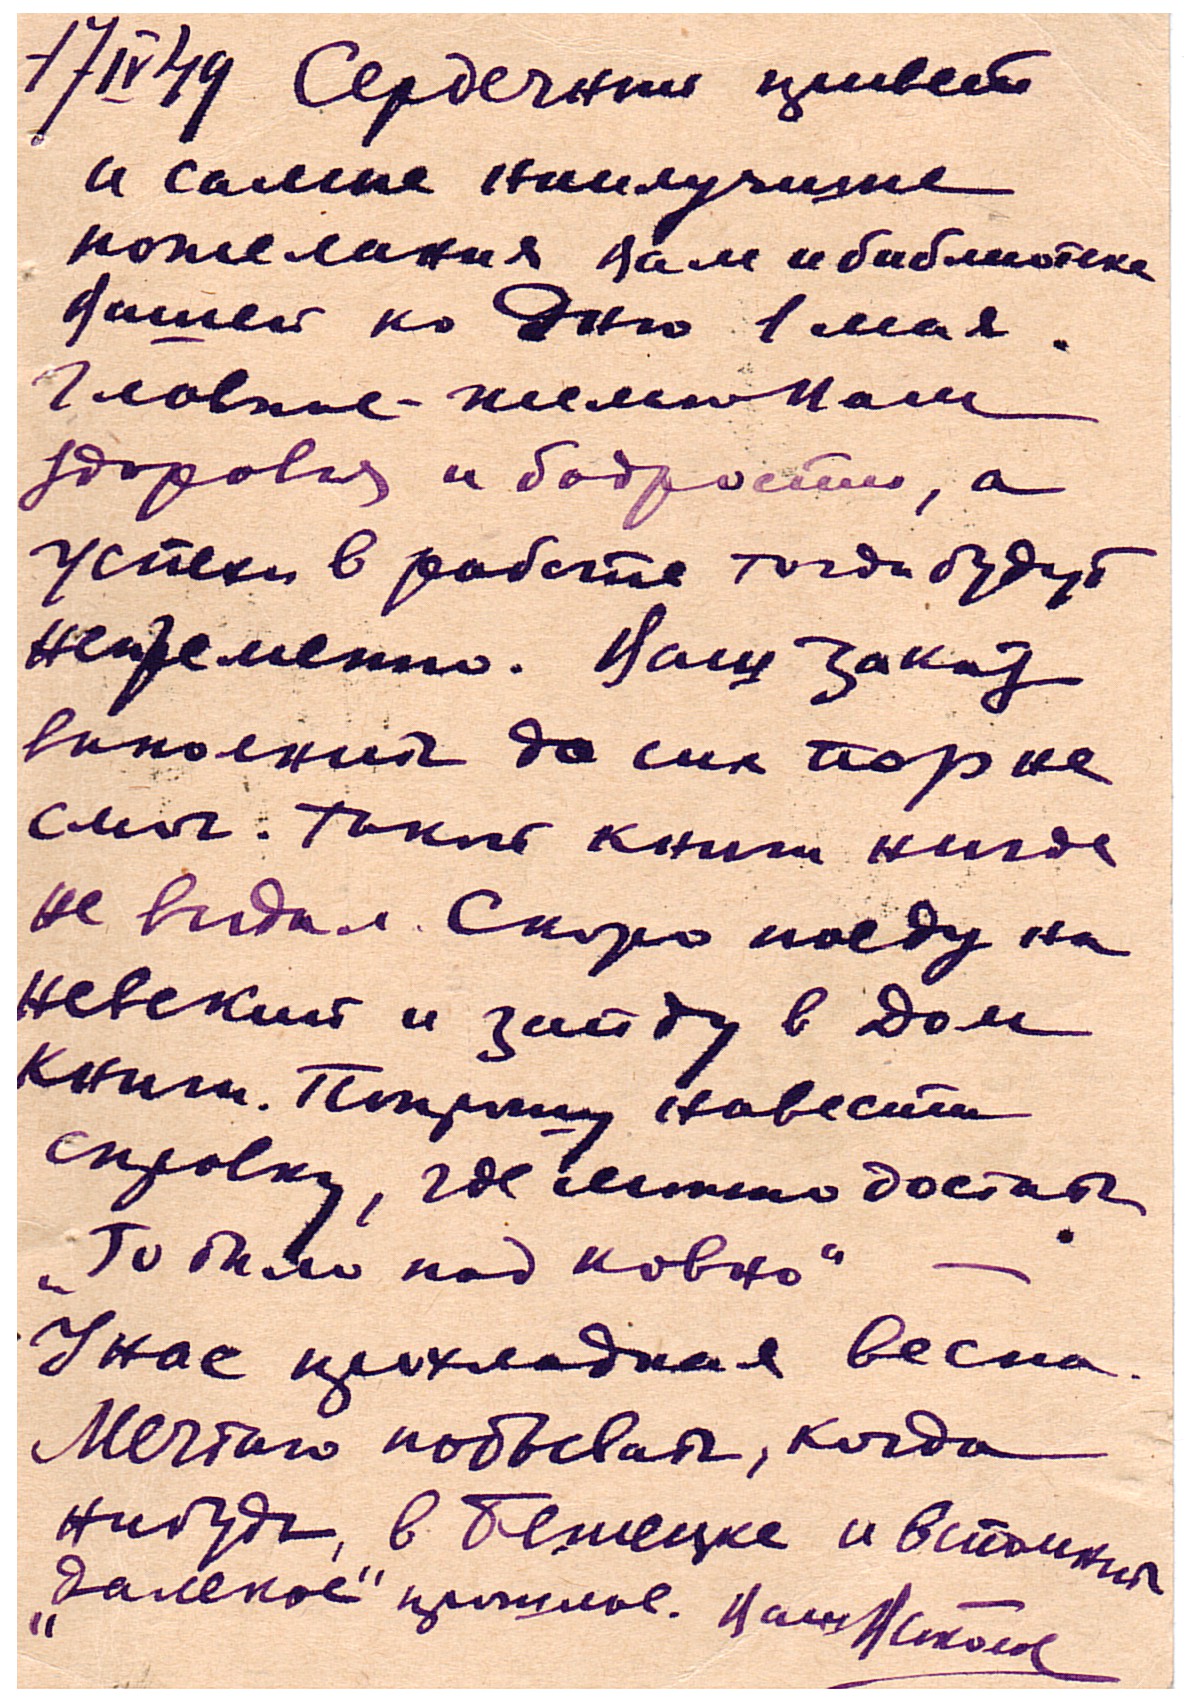 17/IV 49 Сердечный привет
и самые наилучшие
пожелания Вам и библиотеке
Вашей ко Дню 1 мая.
Главное - желаю Вам
здоровья и бодрости, а
успехи в работе тогда будут
непременно. Ваш заказ
выполнить до сих пор не
смог. Такой книги нигде
не видал. Скоро поеду на
Невский и зайду в Дом
Книги. Попрошу навести
справку, где можно достать
„То было под Ковно“ —
У нас прохладная весна.
Мечтаю побывать, когда
нибудь, в Бежецке и вспомнить
„далекое“ прошлое. Ваш